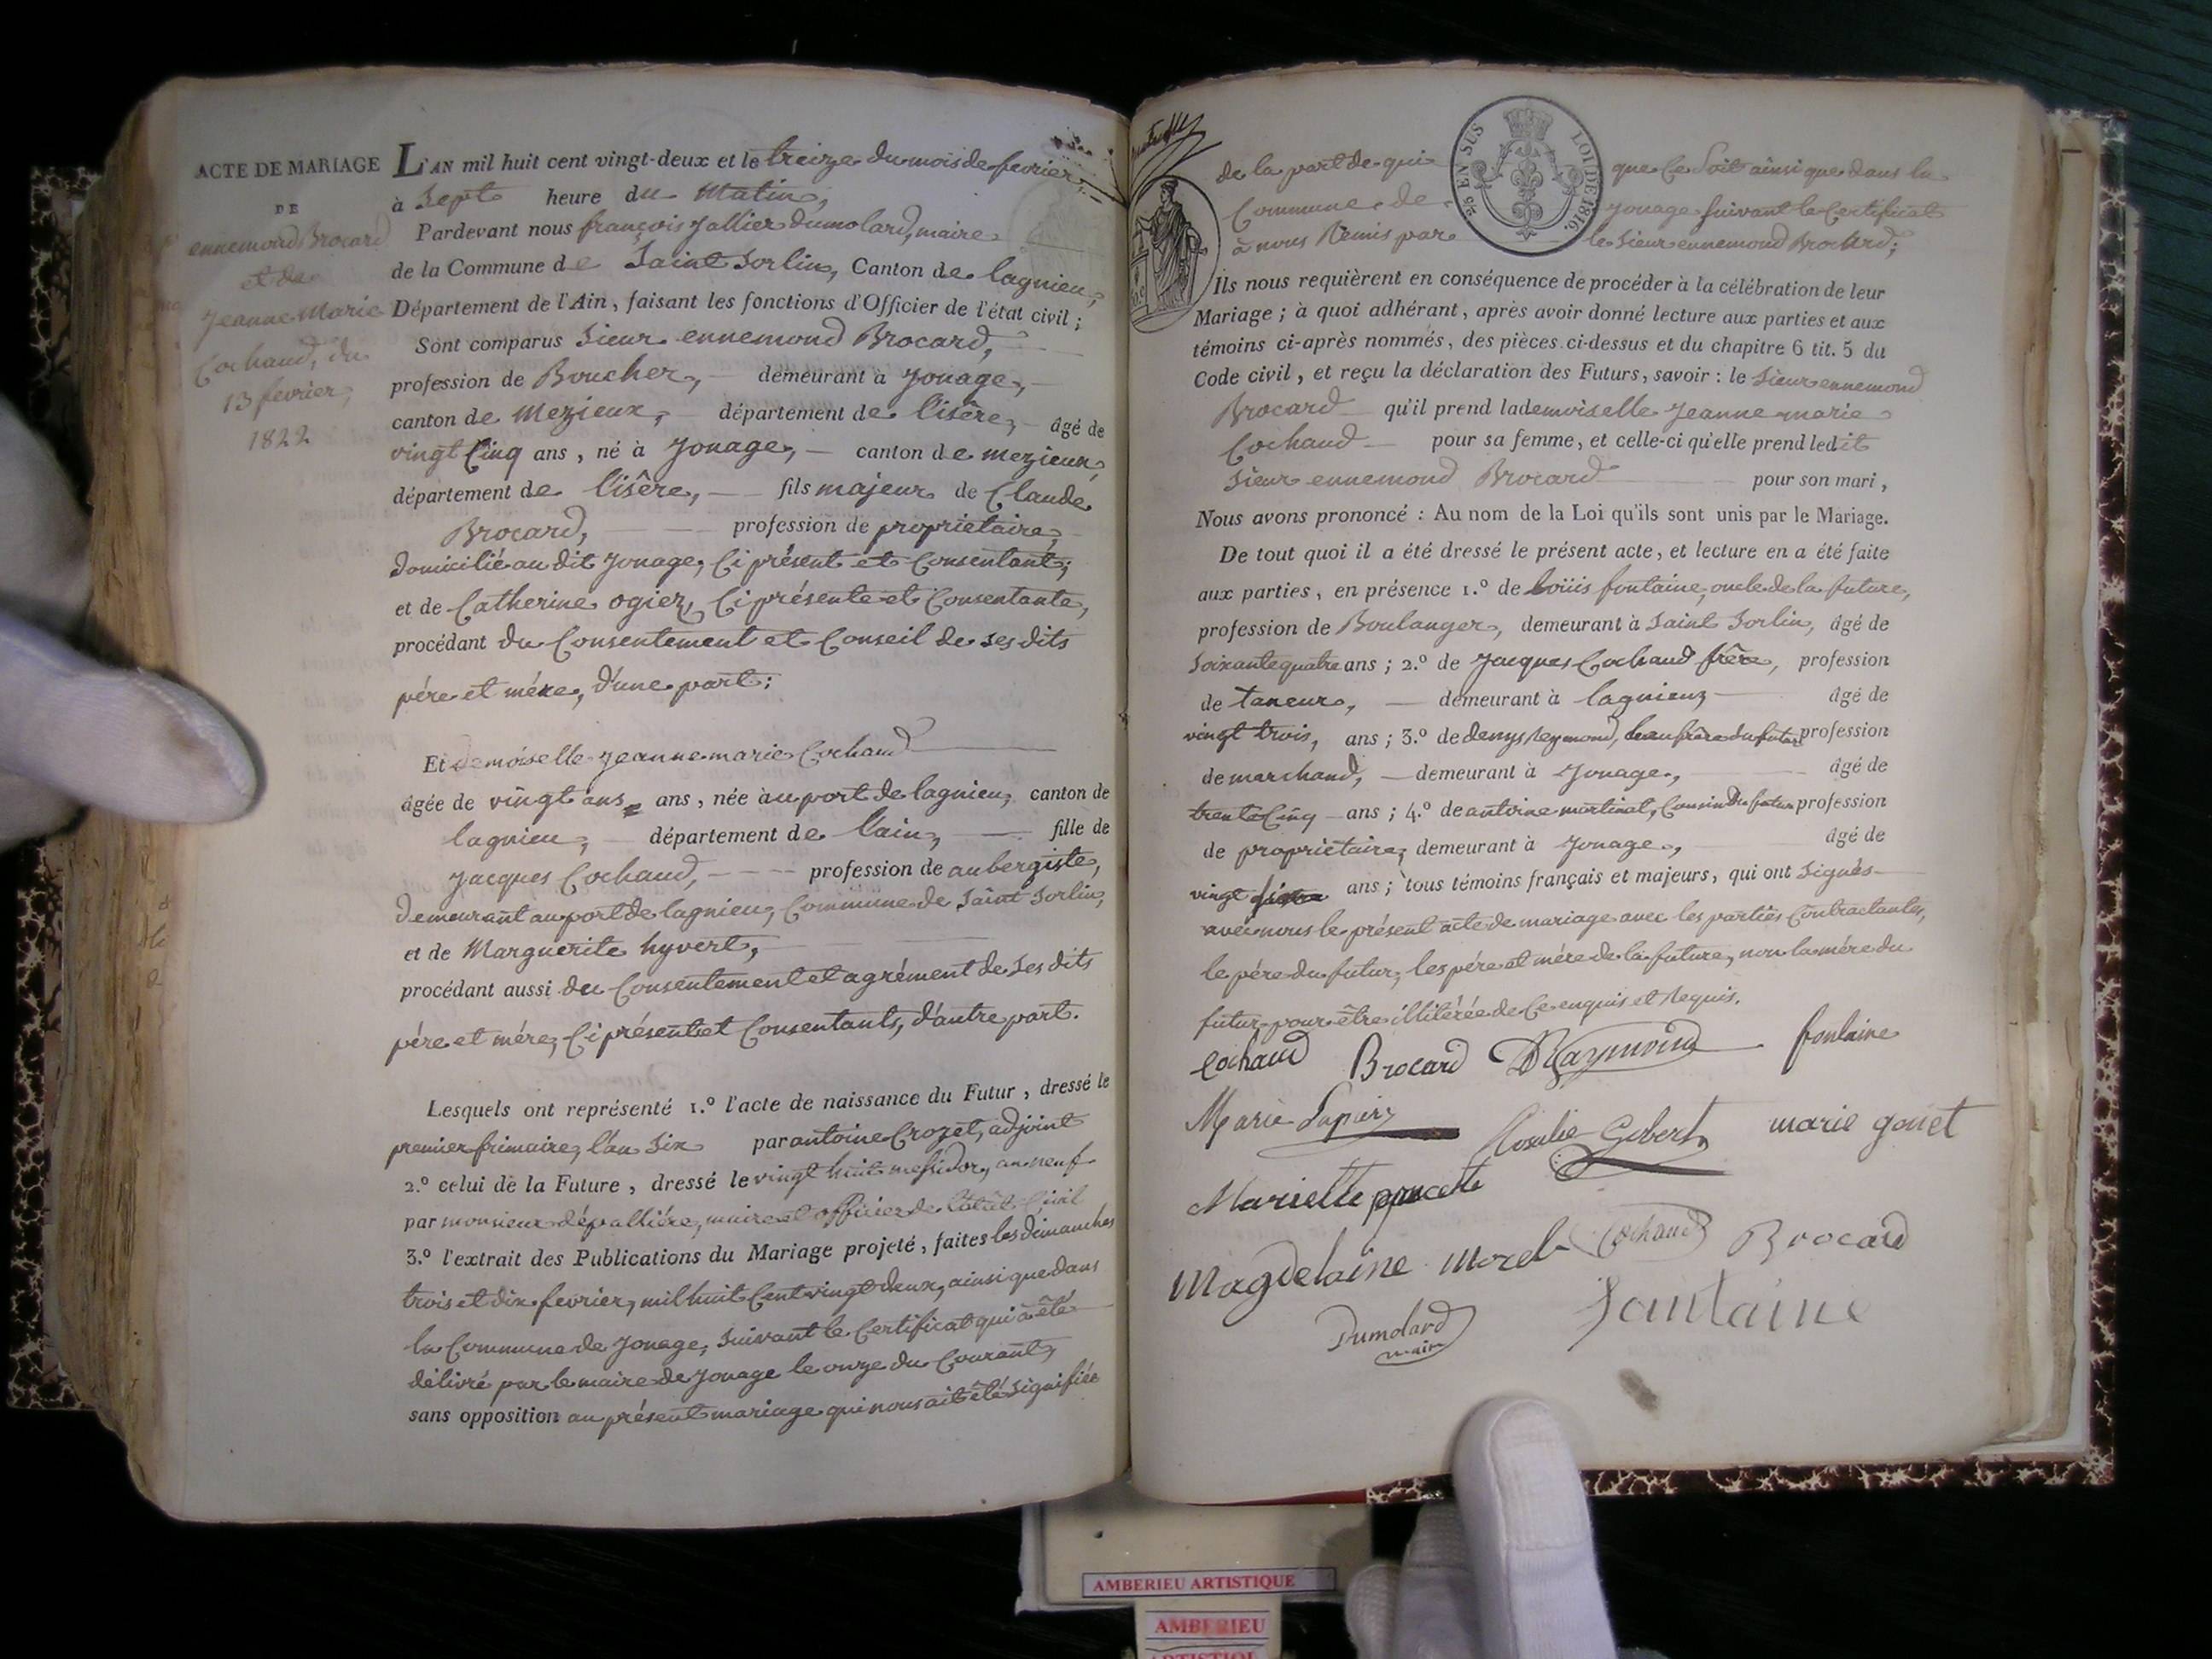 ACTE DE MARIAGE
DE
ennemond Brocard
et de
Jeanne Marie
Cochaud, du
13 fevrier,
1822
L'AN mil huit cent vingt-deux et le treize du mois de fevrier,
à Sept heure du Matin,
Pardevant nous françois Jallier dumolard, maire
de la Commune de Saint Sorlin, Canton de lagnieu,
Département de l'Ain, faisant les fonctions d'Officier de l'état civil ;
Sont comparus Sieur ennemond Brocard,
profession de Boucher, demeurant à Jonage,
canton de Mezieux, département de lisère, âgé de
vingt Cinq ans, né à Jonage, canton de mezieux,
département de lisêre, fils majeur de Claude
Brocard, profession de proprietaire,
domicilié au dit Jonage, Ci présent et Consentant;
et de Catherine ogier, Ci présente et Consentante,
procédant du Consentement et Conseil de ses dits
pére et mére, d'une part;
Et demoiselle Jeanne marie Cochaud
âgée de vingt ans ans, née au port de lagnieu, canton de
lagnieu, département de l'ain, fille de
Jacques Cochaud, profession de aubergiste,
demeurant au port de lagnieu, Commune de Saint Sorlin,
et de Marguerite hyvert,
procédant aussi du Consentement et agrément de ses dits
pére et mére, Ci présent et Consentants, d'autre part.
Lesquels ont représenté 1.º l'acte de naissance du Futur, dressé le
premier frimaire, l'an Six par antoine Crozet, adjoint
2.º celui de la Future, dressé le vingt huit messidor, an neuf
par monsieur dépalliére, maire et officier de l'état Civil
3.º l'extrait des Publications du Mariage projeté, faites les dimanches
trois et dix fevrier, mil huit Cent vingt deux, ainsi que dans
la Commune de Jonage, suivant le Certificat qui à été
délivré par le maire de Jonage le onze du Courant,
sans opposition au présent mariage qui nous ait été signifiée
25 EN SUS
LOI DE 1816.
de la part de qui que ce Soit ainsi que dans la
Commune de Jonage suivant le Certificat
à nous Remis par le sieur ennemond Brocard;
Ils nous requièrent en conséquence de procéder à la célébration de leur
Mariage ; à quoi adhérant, après avoir donné lecture aux parties et aux
témoins ci-après nommés, des pièces ci-dessus et du chapitre 6 tit. 5 du
Code civil, et reçu la déclaration des Futurs, savoir : le Sieur ennemond
Brocard qu'il prend lademoiselle Jeanne marie
Cochaud pour sa femme, et celle-ci qu'elle prend ledit
Sieur ennemond Brocard pour son mari,
Nous avons prononcé : Au nom de la Loi qu'ils sont unis par le Mariage.
De tout quoi il a été dressé le présent acte, et lecture en a été faite
aux parties, en présence 1.º de Loüis fontaine, oncle de la future,
profession de Boulanger, demeurant à Saint Sorlin, âgé de
Soixante quatre ans ; 2.º de Jacques Cochaud frére, profession
de taneur, demeurant à lagnieu, âgé de
vingt trois, ans ; 3.º de denys Reymond, beau frére du futur profession
de marchand, demeurant à Jonage, âgé de
trente Cinq ans ; 4.º de antoine martinat, Cousin du futur profession
de propriétaire, demeurant à Jonage, âgé de
vingt ans ; tous témoins français et majeurs, qui ont signés
avec nous le présent acte de mariage avec les parties Contractantes,
le pére du futur, les pére et mére de la future, non la mére du
futur pour être illitérée de Ce enquis et Requis.
Cochaud Brocard DRaymond fontaine
Marie Rosalie Gobert marie gonet
Mariette poncet
Magdelaine Morel Cochaud Brocard
Dumolard fontaine
maire
AMBERIEU ARTISTIQUE
AMBERIEU
ARTISTIQUE